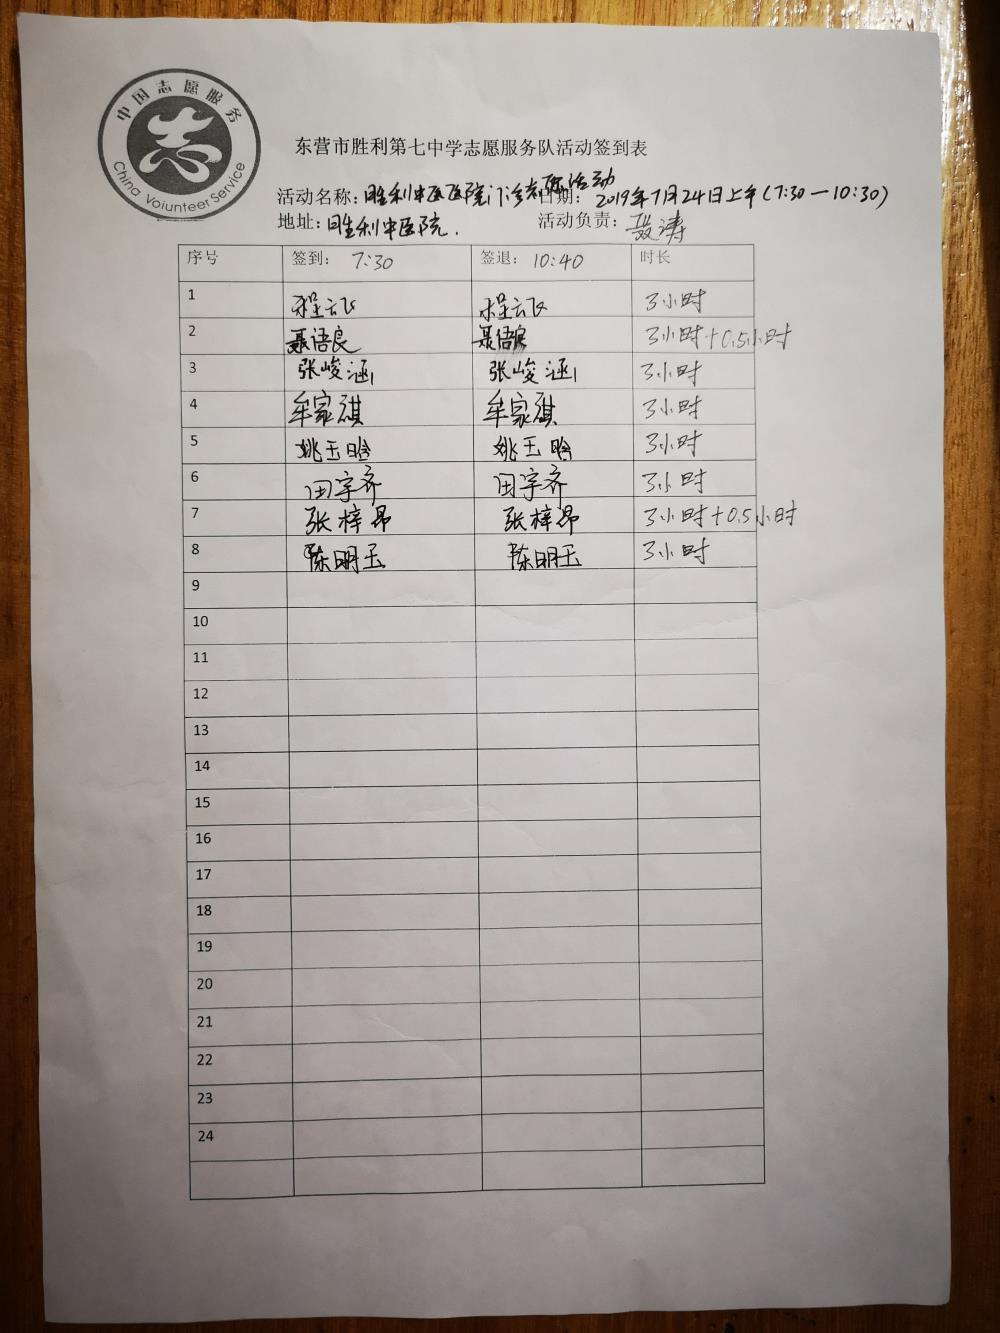 中国志愿服务
志
China Voiunteer Service
东营市胜利第七中学志愿服务队活动签到表
活动名称：胜利中医医院门诊志愿活动 日期：2019年7月24日上午(7:30—10:30)
地址：胜利中医院. 活动负责：聂涛
序号 签到：7:30 签退：10:40 时长
1 程云飞 程云飞 3小时
2 聂语良 聂语良 3小时+0.5小时
3 张峻涵 张峻涵 3小时
4 牟家祺 牟家祺 3小时
5 姚玉晗 姚玉晗 3小时
6 田宇齐 田宇齐 3小时
7 张梓昂 张梓昂 3小时+0.5小时
8 陈明玉 陈明玉 3小时
9
10
11
12
13
14
15
16
17
18
19
20
21
22
23
24